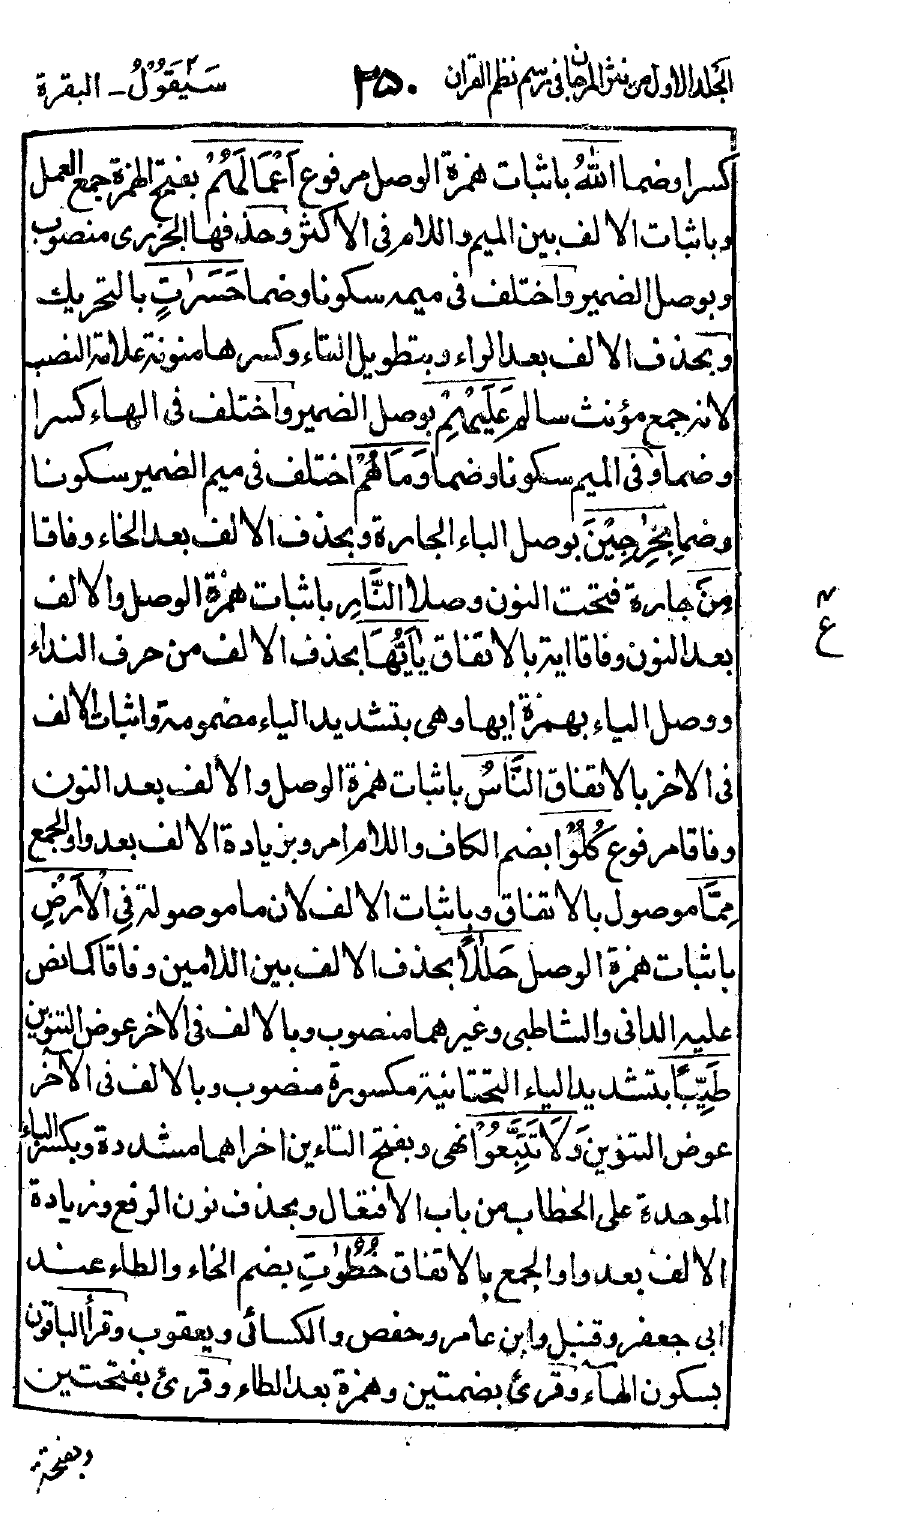 الجلد الاول من نثر المرجان في رسم نظم القران ٣٥٠ سَيَقُوْلُ ٢ ـ البقرة
كسرا وضما اللّٰهُ باثبات همزة الوصل مرفوع اَعْمَالَهُمْ بفتح الهمزة جمع العمل
وباثبات الالف بين الميم واللام في الاكثر وحذفها الجزرى منصوب
وبوصل الضمير واختلف فى ميمه سكونا وضما حَسَرٰتٍ بالتحريك
وبحذف الالف بعد الراء وبتطويل التاء وكسرها منونة علامة النصب
لانه جمع مؤنث سالم عَلَيْهِمْ بوصل الضمير واختلف فى الهاء كسرا
وضما وفى الميم سكونا وضما وَمَاهُمْ اختلف فى ميم الضمير سكونا
وضما بِخٰرِجِيْنَ بوصل الباء الجارة وبحذف الالف بعد الخاء وفاقا
مِنَ جارة فتحت النون وصلا النَّارِ باثبات همزة الوصل والالف
بعد النون وفاقا اية بالاتفاق يٰاَيُّهَا بحذف الالف من حرف النداء
ووصل الياء بهمزة ايها وهى بتشديد الياء مضمومة واثبات الالف
فى الاخر بالاتفاق النَّاسُ باثبات همزة الوصل والالف بعد النون
وفاقا مرفوع كُلُوْا بضم الكاف واللام امر وبزيادة الالف بعد واو الجمع
مِمَّا موصول بالاتفاق وباثبات الالف لان ما موصولة فِى الْاَرْضِ
باثبات همزة الوصل حَلٰلًا بحذف الالف بين اللامين وفاقا كما نص
عليه الدانى والشاطبى وغيرهما منصوب وبالالف فى الاخر عوض التنوين
طَيِّبًا بتشديد الياء التحتانية مكسورة منصوب وبالالف فى الآخر
عوض التنوين وَلَا تَتَّبِعُوْا نهى وبفتح التاءين اخراهما مشددة وبكسر الباء
الموحدة على الخطاب من باب الافتعال وبحذف نون الرفع وزيادة
الالف بعد واو الجمع بالاتفاق خُطُوٰتِ بضم الخاء والطاء عند
ابى جعفر وقنبل وابن عامر وحفص والكسائى ويعقوب وقرأ الباقون
بسكون الهاء وقرئ بضمتين وهمزة بعد الطاء وقرئ بفتحتين
وبفتحة
ع